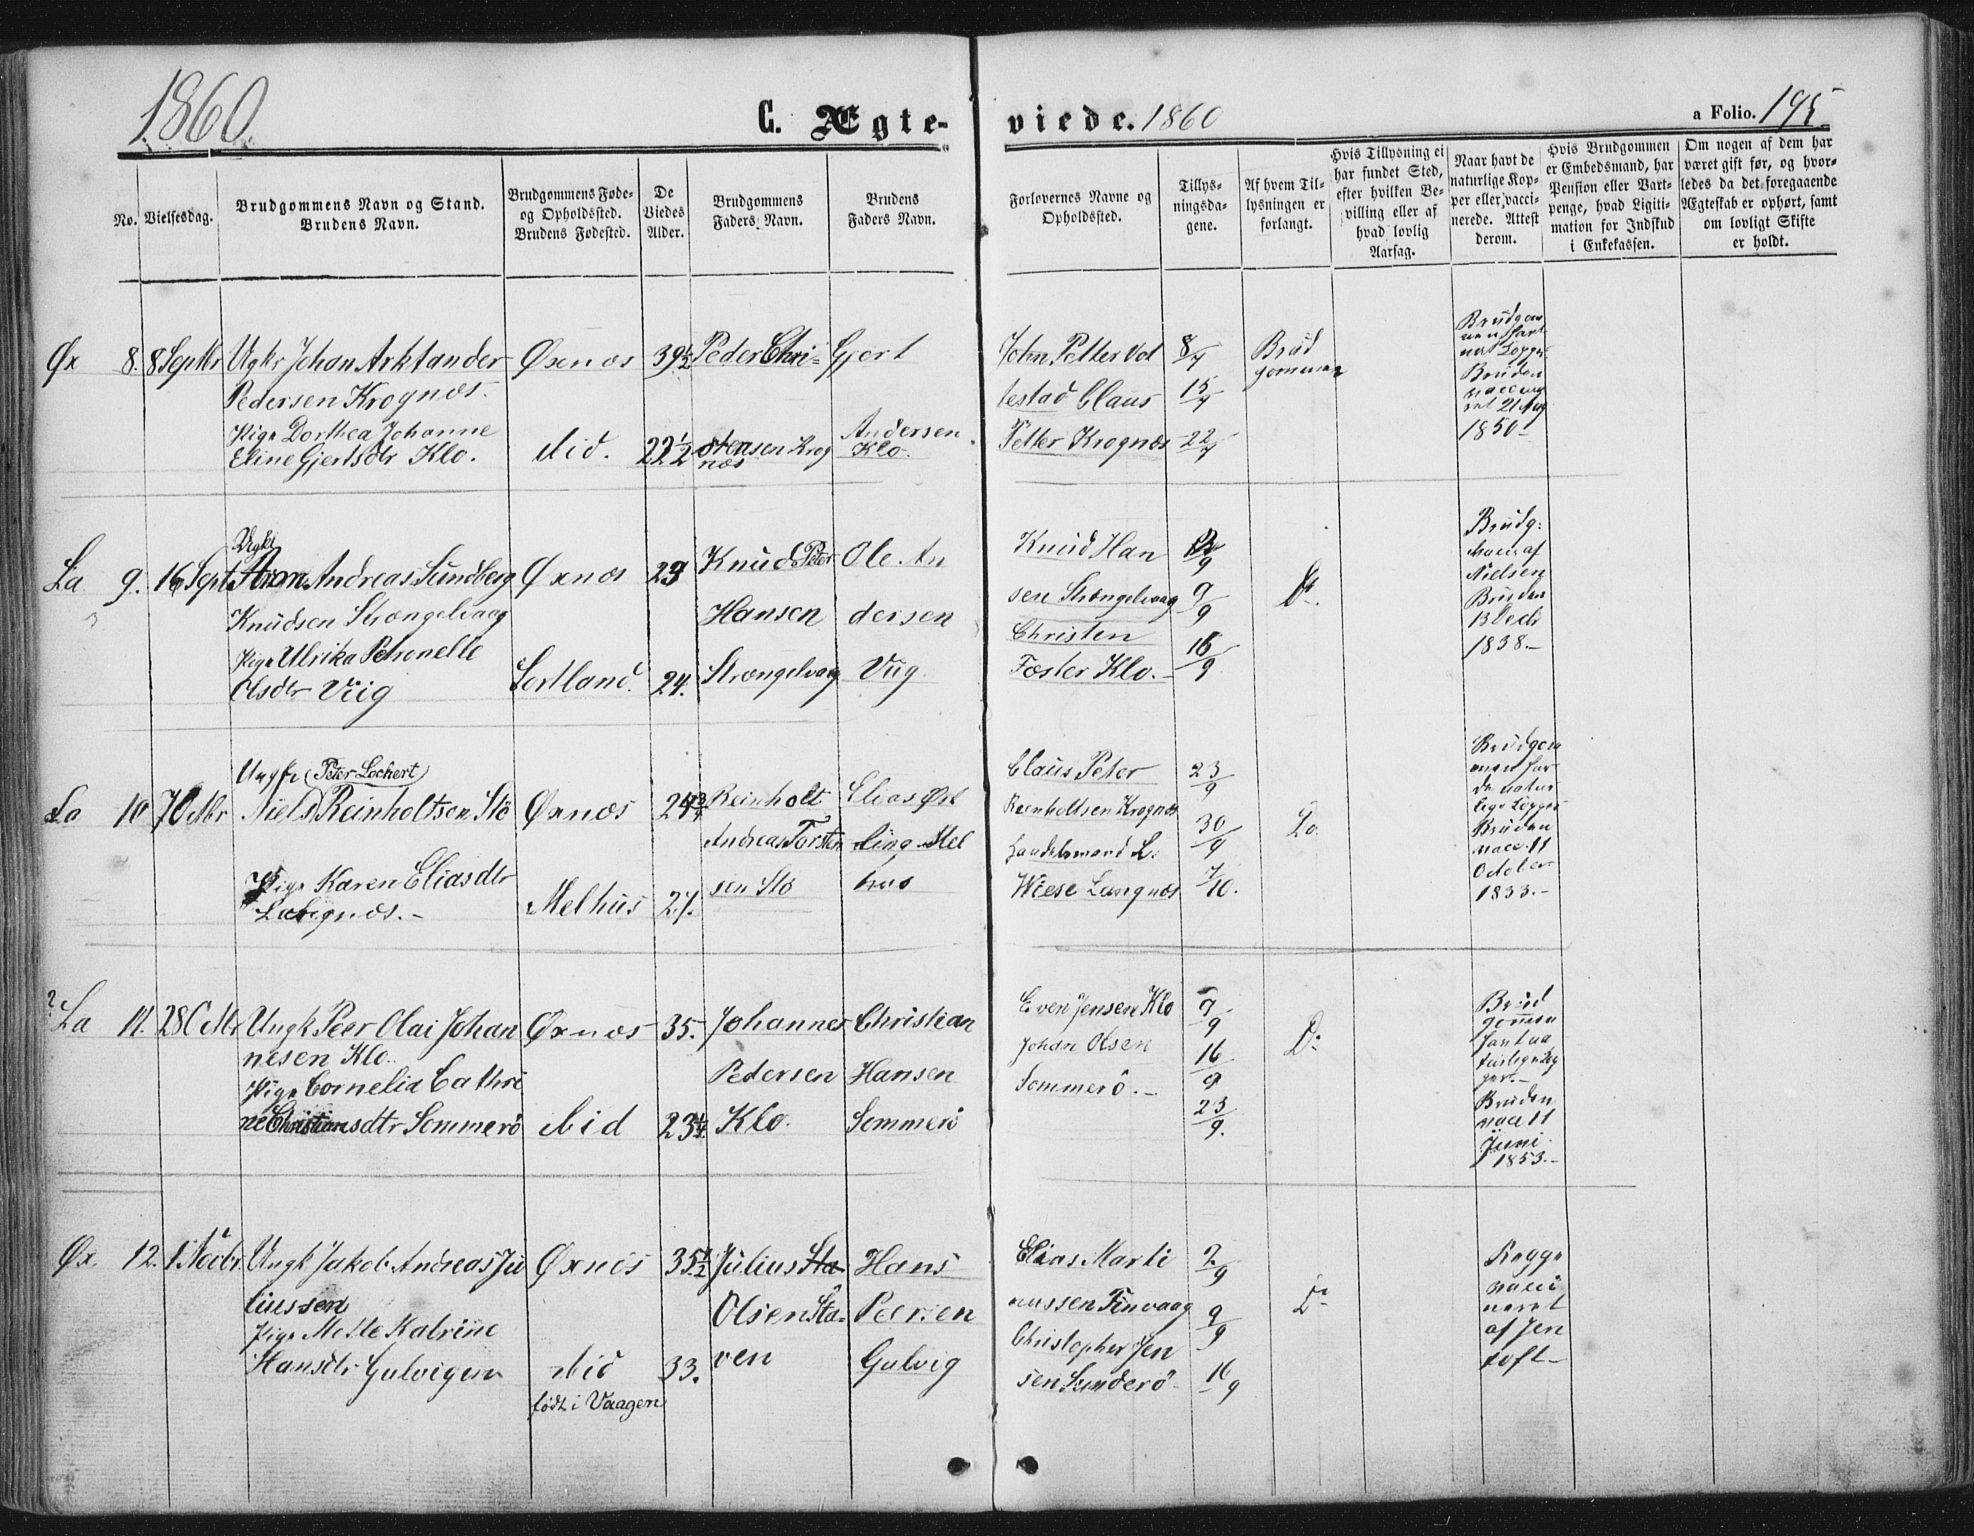 1860.
C. Ægte-
viede. 1860
a Folio. 195
No.
Vielsesdag.
Brudgommens Navn og Stand.
Brudens Navn.
Brudgommens Føde-
og Opholdssted.
Brudens Fødested.
De
Viedes
Alder.
Brudgommens
Faders Navn.
Brudens
Faders Navn.
Forlovernes Navne og
Opholdssted.
Tillys-
ningsda-
gene.
Af hvem Til-
lysningen er
forlangt.
Hvis Tillysning ei
har fundet Sted,
efter hvilken Be-
villing eller af
hvad lovlig
Aarsag.
Naar havt de
naturlige Kop-
per eller vacci-
nerede. Attest
derom.
Hvis Brudgommen
er Embedsmand, har
Pension eller Vart-
penge, hvad Ligiti-
mation for Indskud
i Enkekassen.
Om nogen af dem har
været gift før, og hvor-
ledes da det foregaaende
Ægteskab er ophørt, samt
om lovligt Skifte
er holdt.
Øx
8.
8 Septbr
Ugkr Johan Arktander
Pedersen Krognæs.
Pige Dorthea Johanne
Eline Gjertsdtr Klo.
Øxnæs
ibid.
39½
22½
Peder Chri=
stensen Krog
næs
Gjert
Andersen
Klo.
John Petter Vol
lestad Claus
Petter Krognæs
8/7
15/7
22/7
Brud
gommen
Bruden
vacci
21 Aug
1850
La
9.
16 Sept
Ugkr
Andreas Sundberg
Knudsen Strængelvaag
Pige Ulrika Petronelle
Olsdtr Viig
Øxnæs
Sortland.
23
24.
Knud Peter
Hansen
Strængelvaag
Ole An
dersen
Viig
Knud Han
sen Strængelvaag
Christen
Foster Klo.
9/9
16/9
Do.
Brudg:
vacc. af
Nielsen
Bruden
13 Decb
1838.
La
10
7 Octbr
Ungk (Peter Lockert)
Niels Reinholtsen Stø
Pige Karen Eliasdtr
Langnæs.
Øxnæs
Melhus
24¾
27.
Reinholt
Andreas Torsten
sen Stø
Elias Øst
ling Mel
huus
Claus Peter
Reinholtsen Krognæs
Handelsmand L.
Wiese Langnæs
23/9
30/9
7/10.
Do
Brudgom
men har
de natur
lige Kopper
Bruden
vacc. 11
October
1833.
? La
11.
28 Octbr
Ungk Peer Olai Johan
nesen Klo.
Pige Cornelia Cathri
ne Christiansdtr Sommerö
Øxnæs
ibid
35.
23¼
Johannes
Pedersen
Klo.
Christian
Hansen
Sommerö
Even Jensen Klo
Johan Olsen
Sommerö.
9/9
16/9
23/9.
Do
Brud
gommen
Bruden
vacc 11
Juni
1853.
Øx.
12.
1 Novbr.
Ungk Jakob Andreas Ju
liussen
Pige Mette Katrine
Hansdtr Gulvigen
Øxnæs
ibid
født i Vaagen
35½
33.
Julius Sta
Olsen Sta=
ven
Hans
Pedersen
Gulvig
Elias Marti
nussen Finvaag
Christopher Jen
sen Sunderö
2/9
9/9
16/9
Do
Begge
vacci
neret
af Jen
toft